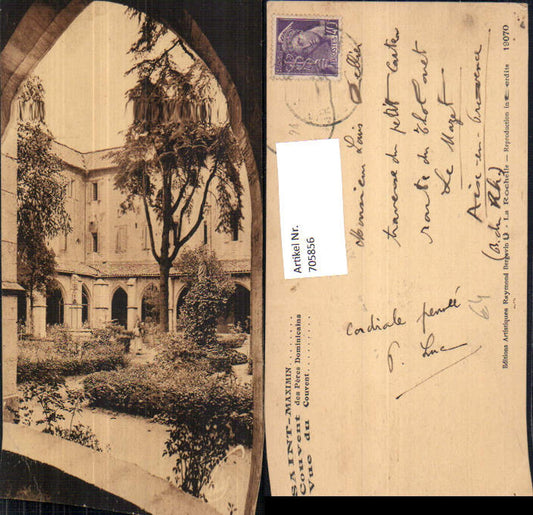 Artikel Nr.
705856
SAINT-MAXIMIN
Couvent des Pères Dominicains
Vue du Couvent
Cordiale pensée
P. Luc
64
Monsieur Louis
traverse du petit
route du Tholonet
Le
Aix-en-Provence
(B. du Rh.)
Editions Artistiques Raymond Bergevin - La Rochelle - Reproduction interdite 19070